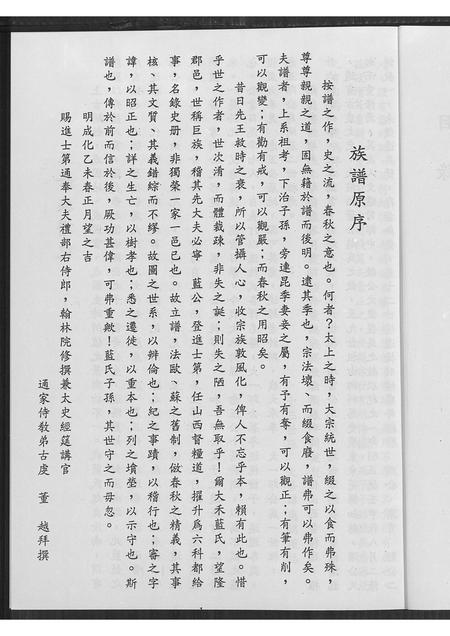 族譜原序
按譜之作，史之流，春秋之意也。何者？太上之時，大宗統世，綴之以食而弗殊，
尊尊親親之道，固無籍於譜而後明。逮其季也，宗法壞、而綴食廢，譜弗可以弗作矣。
夫譜者，上系祖考，下治子孫，旁連昆季妻妾之屬，有予有奪，可以觀正；有筆有削，
可以觀變；有勸有戒，可以觀嚴；而春秋之用昭矣。
昔日先王救時之衰，所以管攝人心，收宗族敦風化，俾人不忘乎本，賴有此也。惜
乎世之作者，世次淆，而體裁疎，非失之誕；則失之陋，吾無取乎！爾大禾藍氏，望隆
郡邑，世稱巨族，稽其先大夫必寧 藍公，登進士第，任山西督糧道，擢升爲六科都給
事，名錄史册，非獨榮一家一邑已也。故立譜，法歐、蘇之舊制，倣春秋之精義，其事
核、其文質、其義錯綜而不繆。故圖之世系，以辨倫也；紀之事蹟，以稽行也；審之字
諱，以昭正也；詳之生亡，以樹孝也；悉之遷徙，以重本也；列之墳塋，以示守也。斯
譜也，傳於前而信於後，厥功甚偉，可弗重歟！藍氏子孫，其世守之而毋忽。
明成化乙未春正月望之吉
賜進士第通奉大夫禮部右侍郎，翰林院修撰兼太史經筵講官
通家侍教弟古虔 董 越拜撰